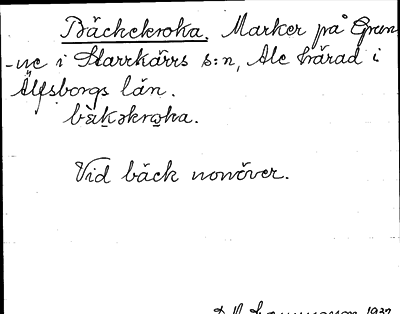 Bäckekroka. Marker på Grun
-ne i Starrkärrs s:n, Ale härad i
Älfsborgs län.
Vid bäck nonöver.
1932